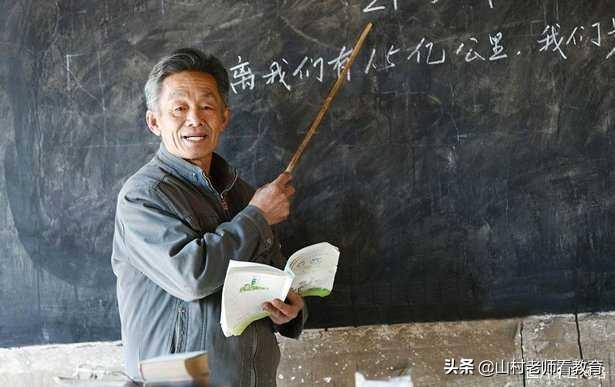 离我们有1.5亿公里,我们
头条 @山村老师看教育